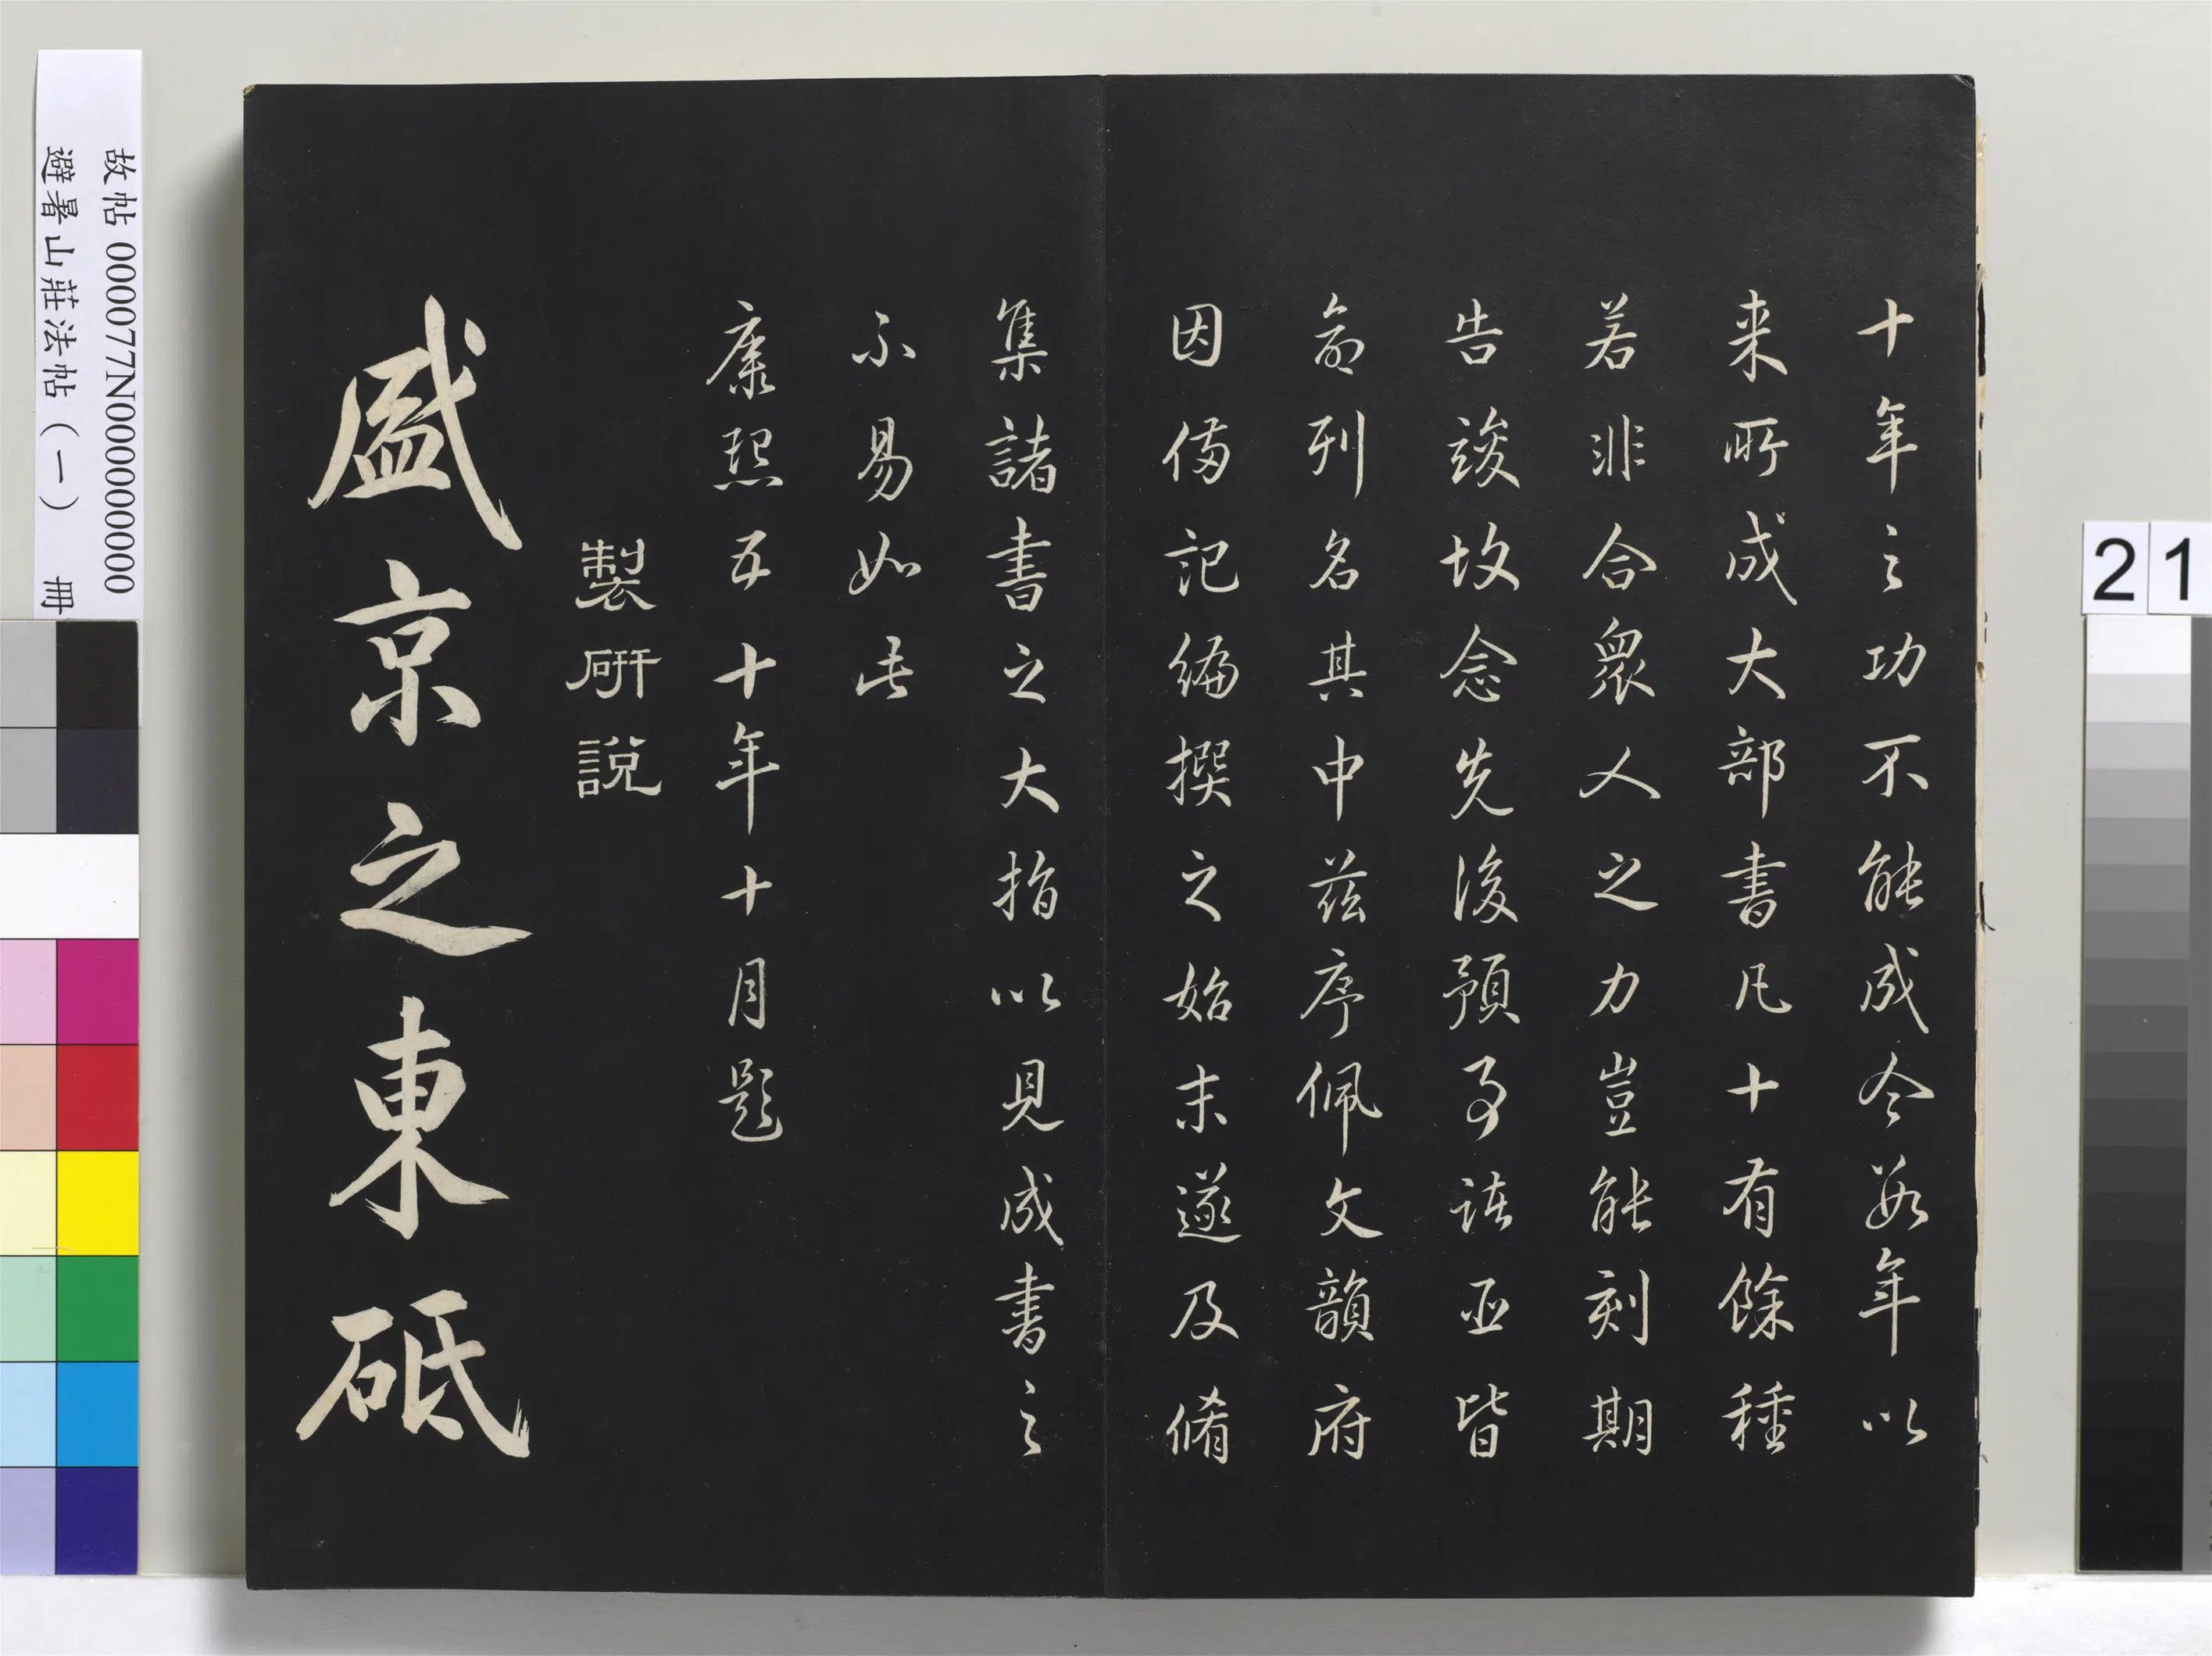 十年之功不能成今數年以
来所成大部書凡十有餘種
若非合衆人之力豈能刻期
告竣故念先後預事諸臣皆
命列名其中兹序佩文韻府
因備記編撰之始末遂及脩
集諸書之大指以見成書之
不易如此
康熙五十年十月題
製研說
盛京之東砥
故帖 000077N000000000
避暑山莊法帖（一） 冊
21